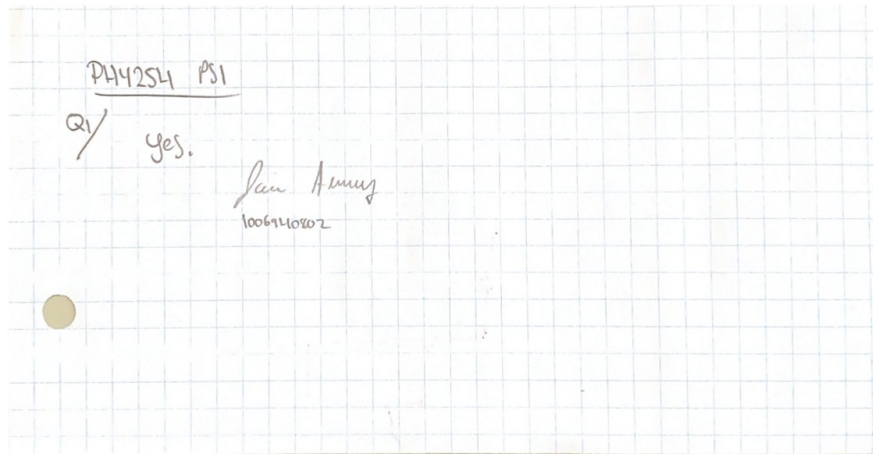 PHY254 PS1
Q1/
yes.
1006940802